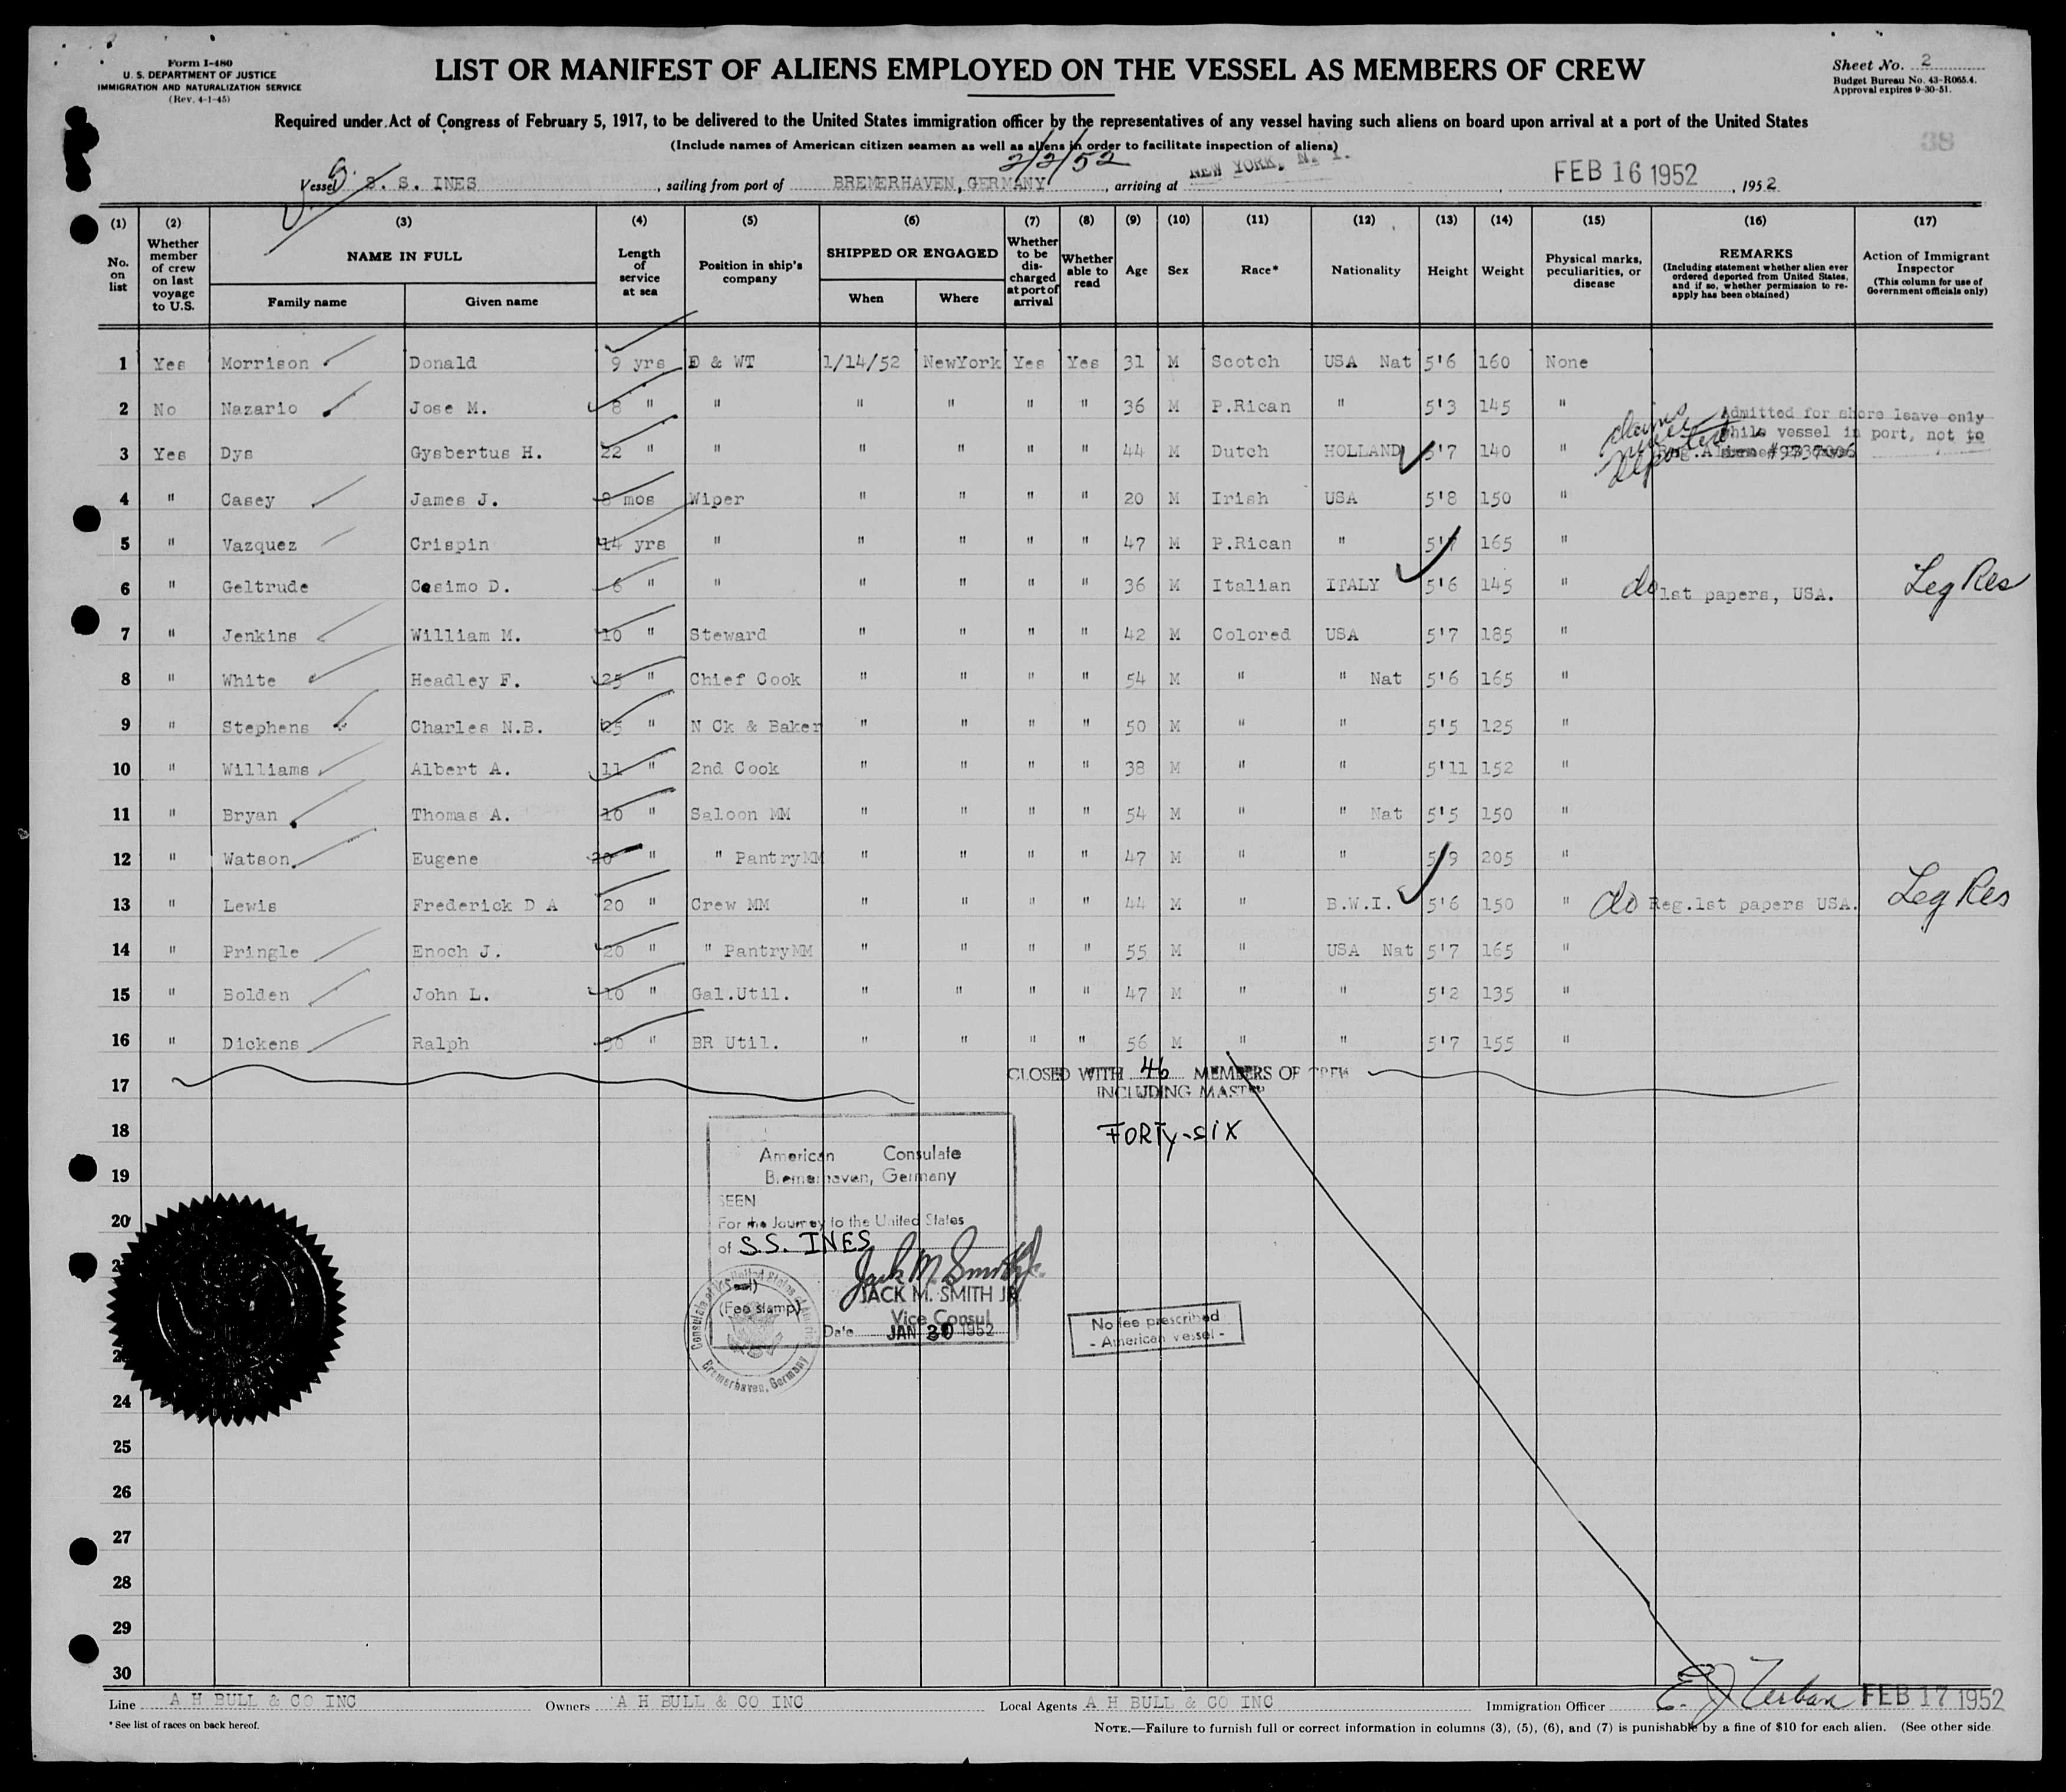 Form I-480
U. S. DEPARTMENT OF JUSTICE
IMMIGRATION AND NATURALIZATION SERVICE
(Rev. 4-1-45)
LIST OR MANIFEST OF ALIENS EMPLOYED ON THE VESSEL AS MEMBERS OF CREW
Sheet No. 2
Budget Bureau No. 43-R065.4.
Approval expires 9-30-51.
Required under Act of Congress of February 5, 1917, to be delivered to the United States immigration officer by the representatives of any vessel having such aliens on board upon arrival at a port of the United States
(Include names of American citizen seamen as well as aliens in order to facilitate inspection of aliens)
38
2/2/52
Vessel S. S. INES, sailing from port of BREMERHAVEN, GERMANY, arriving at NEW YORK, N. Y., FEB 16 1952, 1952
(1) (2) (3) (4) (5) (6) (7) (8) (9) (10) (11) (12) (13) (14) (15) (16) (17)
No. on list
Whether member of crew on last voyage to U.S.
NAME IN FULL
Family name
Given name
Length of service at sea
Position in ship's company
SHIPPED OR ENGAGED
When
Where
Whether to be discharged at port of arrival
Whether able to read
Age
Sex
Race*
Nationality
Height
Weight
Physical marks, peculiarities, or disease
REMARKS
(Including statement whether alien ever ordered deported from United States, and if so, whether permission to re-apply has been obtained)
Action of Immigrant Inspector
(This column for use of Government officials only)
1 Yes Morrison Donald 9 yrs D & WT 1/14/52 NewYork Yes Yes 31 M Scotch USA Nat 5'6 160 None
2 No Nazario Jose M. 8 " " " " " " 36 M P.Rican " 5'3 145 "
Admitted for shore leave only
while vessel in port, not to
claims never deported
3 Yes Dys Gysbertus H. 22 " " " " " " 44 M Dutch HOLLAND 5'7 140 "
4 " Casey James J. 8 mos Wiper " " " " 20 M Irish USA 5'8 150 "
5 " Vazquez Crispin 14 yrs " " " " " 47 M P.Rican " 5'7 165 "
6 " Geltrude Cosimo D. 6 " " " " " " 36 M Italian ITALY 5'6 145 " do 1st papers, USA. Leg Res
7 " Jenkins William M. 10 " Steward " " " " 42 M Colored USA 5'7 185 "
8 " White Headley F. 25 " Chief Cook " " " " 54 M " " Nat 5'6 165 "
9 " Stephens Charles N.B. 25 " N Ck & Baker " " " " 50 M " " 5'5 125 "
10 " Williams Albert A. 11 " 2nd Cook " " " " 38 M " " 5'11 152 "
11 " Bryan Thomas A. 10 " Saloon MM " " " " 54 M " " Nat 5'5 150 "
12 " Watson Eugene 20 " " Pantry MM " " " " 47 M " " 5'9 205 "
13 " Lewis Frederick D A 20 " Crew MM " " " " 44 M " B.W.I. 5'6 150 " do Reg.1st papers USA. Leg Res
14 " Pringle Enoch J. 20 " " PantryMM " " " " 55 M " USA Nat 5'7 165 "
15 " Bolden John L. 10 " Gal.Util. " " " " 47 M " " 5'2 135 "
16 " Dickens Ralph 30 " BR Util. " " " " 56 M " " 5'7 155 "
17
CLOSED WITH 46 MEMBERS OF CREW
INCLUDING MASTER
FORTY-SIX
18
19
20
24
25
26
27
28
29
30
American Consulate
Bremerhaven, Germany
SEEN
For the Journey to the United States
of S.S. INES
Jack M. Smith Jr.
JACK M. SMITH JR
Vice Consul
(Seal)
(Fee stamp)
Date JAN 30 1952
Consulate of the United States of America
Bremerhaven, Germany
No fee prescribed
- American vessel -
Line A H BULL & CO INC Owners A H BULL & CO INC Local Agents A H BULL & CO INC Immigration Officer FEB 17 1952
* See list of races on back hereof.
NOTE.—Failure to furnish full or correct information in columns (3), (5), (6), and (7) is punishable by a fine of $10 for each alien. (See other side